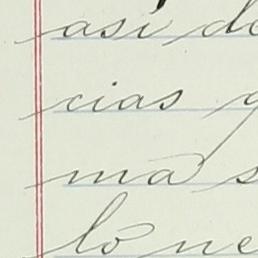 así de
cias q
ma s
lo ne